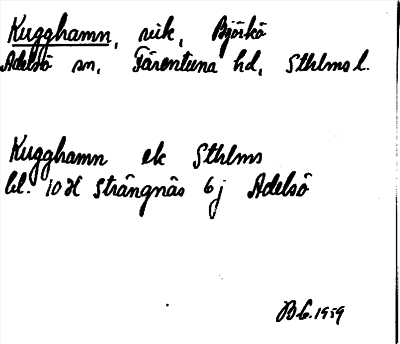 Kugghamn, vik, Björkö
Adelsö sn, Färentuna hd, Sthlms l.
Kugghamn ek Sthlms
bl. 10 H Strängnäs 6j Adelsö
1959